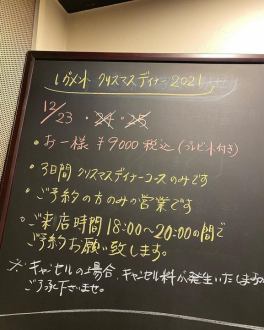 レガメント クリスマスディナー2021
12/23・24・25
・お一様 ¥9000 税込(プレゼント付き)
・3日間クリスマスディナーコースのみです
・ご予約の方のみの営業です
・ご来店時間18:00〜20:00の間で
ご予約お願い致します。
※キャンセルの場合、キャンセル料が発生いたしますので
ご了承下さいませ。